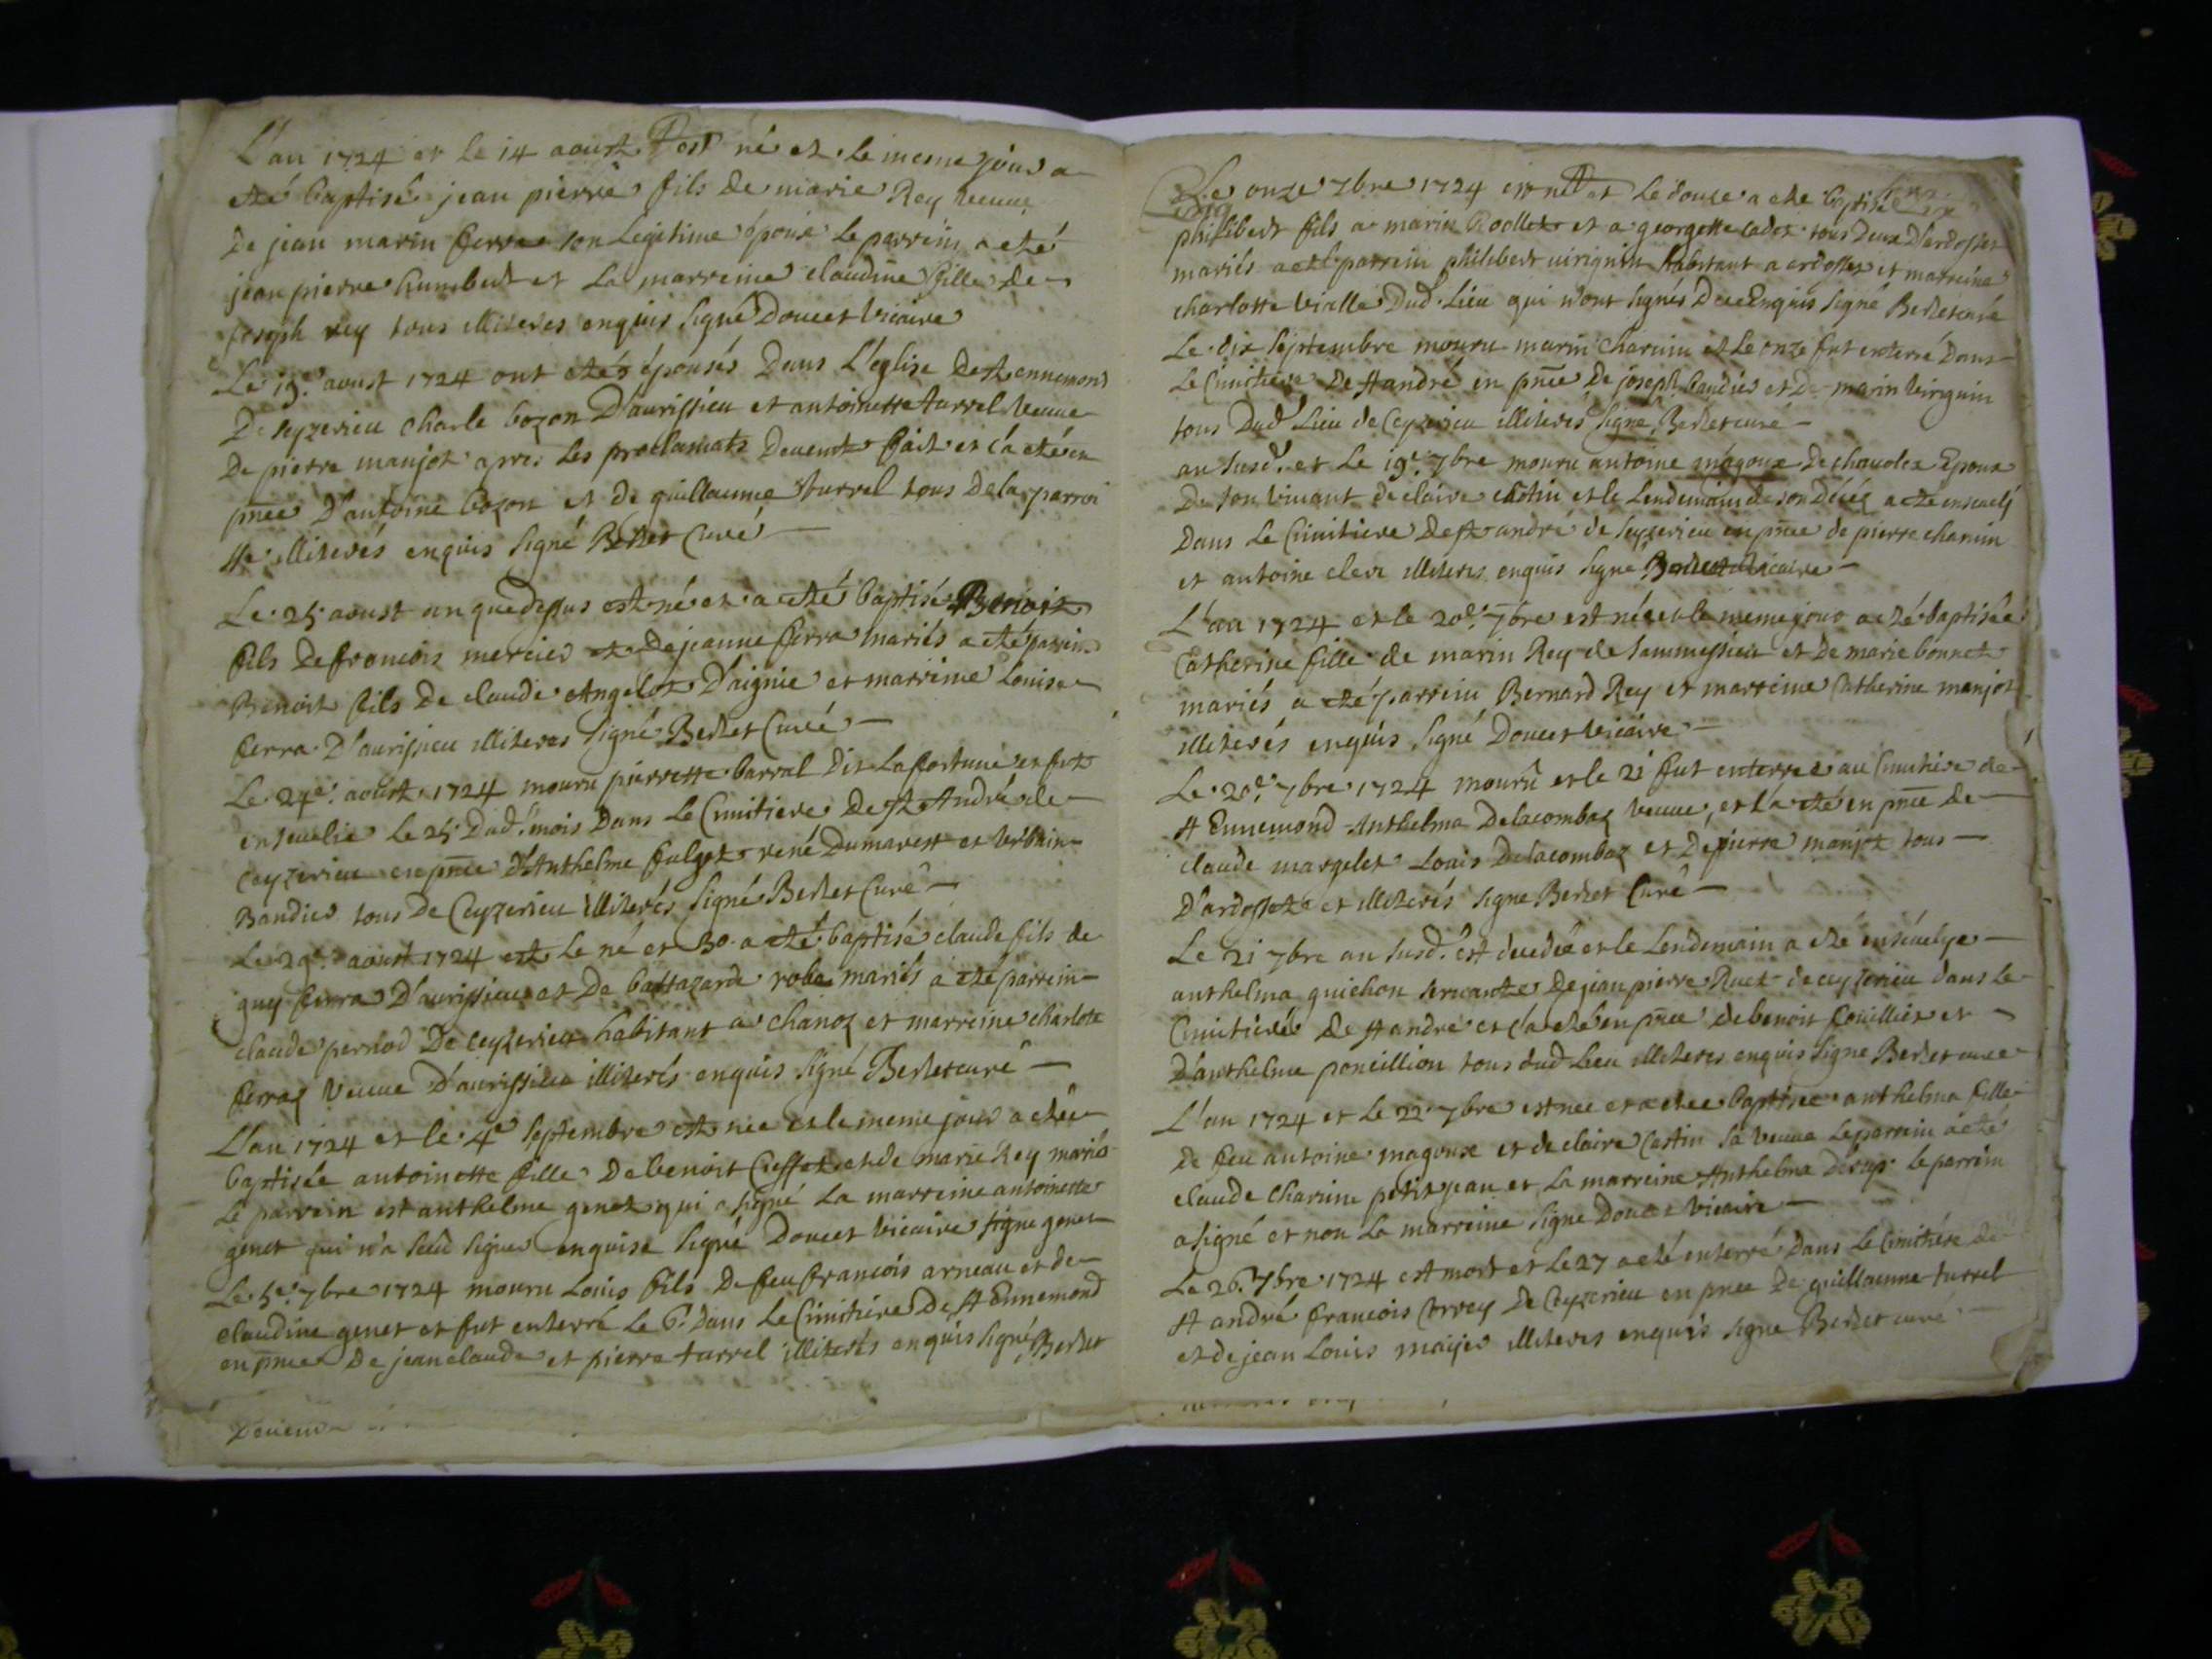 L'an 1724 et le 14 aoust est né et le meme jour a
eté baptisé jean pierre fils de marie Rey veuve
De jean marin ferra son Legitime époux Le parrein a eté
jean pierre humbert et La marreine claudine fille de
joseph rey tous illiteres enquis signé Doucet vicaire
Le 19e aoust 1724 ont etés épousés Dans L'église De st ennemond
De seyzerieu charle bozon D'aurissieu et antoinette turrel veuve
De pierre manjot apres Les proclamats Deuemt fait et ça eté en
pnce D'antoine bozon et de guillaume turrel tous De la parroi
sse illiterés enquis signé Berlet Curé
Le 25 aoust an quedessus est né et a eté baptisé Benoit
fils De francois mercier et De jeanne ferra mariés a eté parrein
Benoit fils De claude Angelot D'aignie et marreine Louise
ferra D'aurissieu illiteres signé Berlet Curé
Le 24e aoust 1724 mouru pierrette barral Dit Lafortune et fut
ensevelie Le 25 Dud. mois Dans Le Cimitiere De st André de
Ceyzerieu en pnce d'Anthelme fulget rené Dumarest et Urbain
Baudier tous De Ceyzerieu illiterés signé Berlet Curé
Le 29e aoust 1724 est Le né et 30 a eté baptisé claude fils de
guy ferra D'aurissieu et De baltazarde robe mariés a eté parrein
claude perriod De ceyzerieu habitant a chanoz et marreine charlote
ferraz veuve D'aurissieu illiterés enquis signé Berlet curé
L'an 1724 et le 4e septembre est née et le meme jour a etée
baptisée antoinette fille De benoit Cuffet et de marie Rey mariés
Le parrein est anthelme genet qui a signé La marreine antoinette
genet qui n'a sceu signer enquise signé Doucet vicaire signe genet
Le 5e 7bre 1724 mouru Louis fils De feu francois arneau et de
claudine genet et fut enterré Le 6e Dans Le Cimitiere De st Ennemond
en pnce De jean claude et pierre turrel illiterés enquis signé Berlet
Le onze 7bre 1724 est né et Le douze a ete baptisé
philibert fils a marin Roollet et a georgette cadot tous Deux D'ardosset
mariés a eté parrein philibert virignin habitant a ardosset et marreine
charlotte vialle Dud. Lieu qui n'ont signés De ce Enquis signé Berlet curé
Le dix septembre mouru marin charuin et Le onze fut enterré Dans
Le Cimitiere De st andré en pnce De joseph baudier et De marin virignin
tous Dud. Lieu de Ceyzerieu illiteres signé Berlet curé
an susd. et Le 19e 7bre mouru antoine magoux De chavolex Epoux
De son vivant de claire et le Lendemain de son Décéz a eté ensevely
Dans Le Cimitiere De st andré de seyzerieu en pnce de pierre charuin
et antoine clerc illiteres enquis signe Berlet vicaire
L'an 1724 et le 20e 7bre est née et le meme jour a eté baptisée
Catherine fille de marin Rey de sammessieu et De marie bonnet
mariés a eté parrein Bernard Rey et marreine Catherine manjot
illiterés enquis signé Doucet vicaire
Le 20e 7bre 1724 mourû et le 21 fut enterree au Cimitiere de
st Ennemond Anthelma Delacombaz veuve, et l'a eté en pnce de
claude margelet Louis Delacombaz et De pierre manjot tous
D'ardosset et illiterés signe Berlet Curé
Le 21 7bre an susd. est decedée et le Lendemain a eté ensevelye
anthelma guichon servante De jean pierre Ruet de ceyzerieu dans le
Cimitiere De st andre et ça eté en pnce de benoit fouillier et
D'anthelme poncillion tous dud lieu illiteres enquis signe Berlet curé
L'an 1724 et Le 22 7bre est nee et a etee baptisee anthelma fille
De feu antoine magoux et de claire Castin sa veuve Le parrein a eté
claude charuin petit jean et La marreine Anthelma le parrein
a signé et non La marreine signe Doucet vicaire
Le 26e 7bre 1724 est mort et Le 27 a eté enterré Dans Le Cimitiere de
st andré francois Correy De Ceyzerieu en pnce De guillaume turrel
et de jean Louis maijer illiteres enquis signe Berlet curé